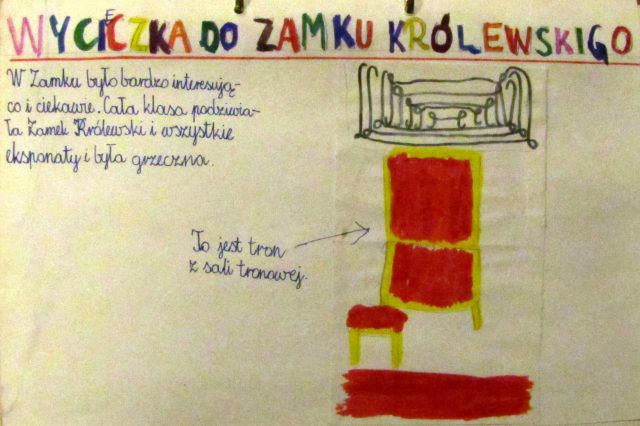 WYCIĘCZKA DO ZAMKU KRÓLEWSKIGO
W Zamku było bardzo interesują-
co i ciekawie. Cała klasa podziwia-
ła Zamek Królewski i wszystkie
eksponaty i była grzeczna.
To jest tron
z sali tronowej.